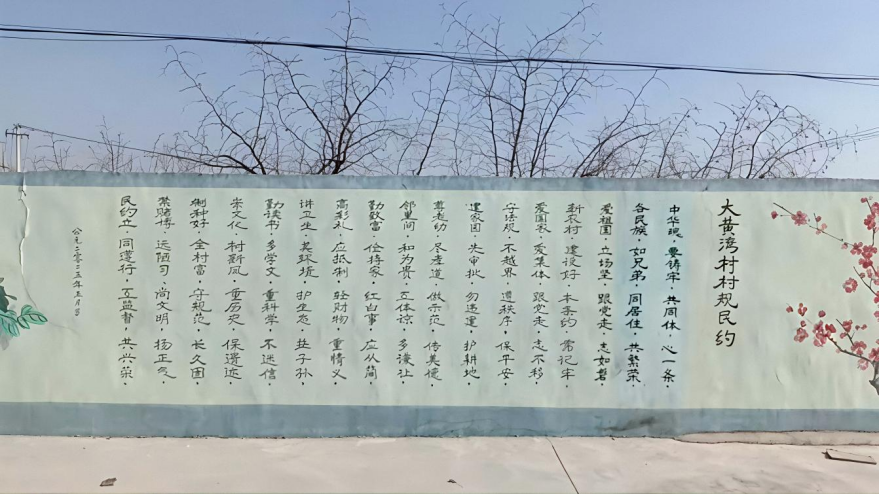 大黄湾村村规民约
中华魂,要铸牢,共同体,心一条,
各民族,如兄弟,同居住,共繁荣,
爱祖国,立场坚,跟党走,志如磐,
新农村,建设好,本条约,常记牢,
爱国家,爱集体,跟党走,志不移,
守法规,不越界,遵秩序,保平安,
建家园,先审批,勿违建,护耕地,
尊老幼,尽孝道,做示范,传美德,
邻里间,和为贵,互体谅,多谦让
勤致富,俭持家,红白事,应从简
高彩礼,应抵制,轻财物,重情义
讲卫生,美环境,护生态,益子孙
勤读书,多学文,重科学,不迷信
宗文化,村新风,重历史,保遗迹,
制种好,全村富,守规范,长久固
禁赌博,远陋习,尚文明,扬正气,
民约立,同遵行,互监督,共兴荣,
公元二〇二五年五月